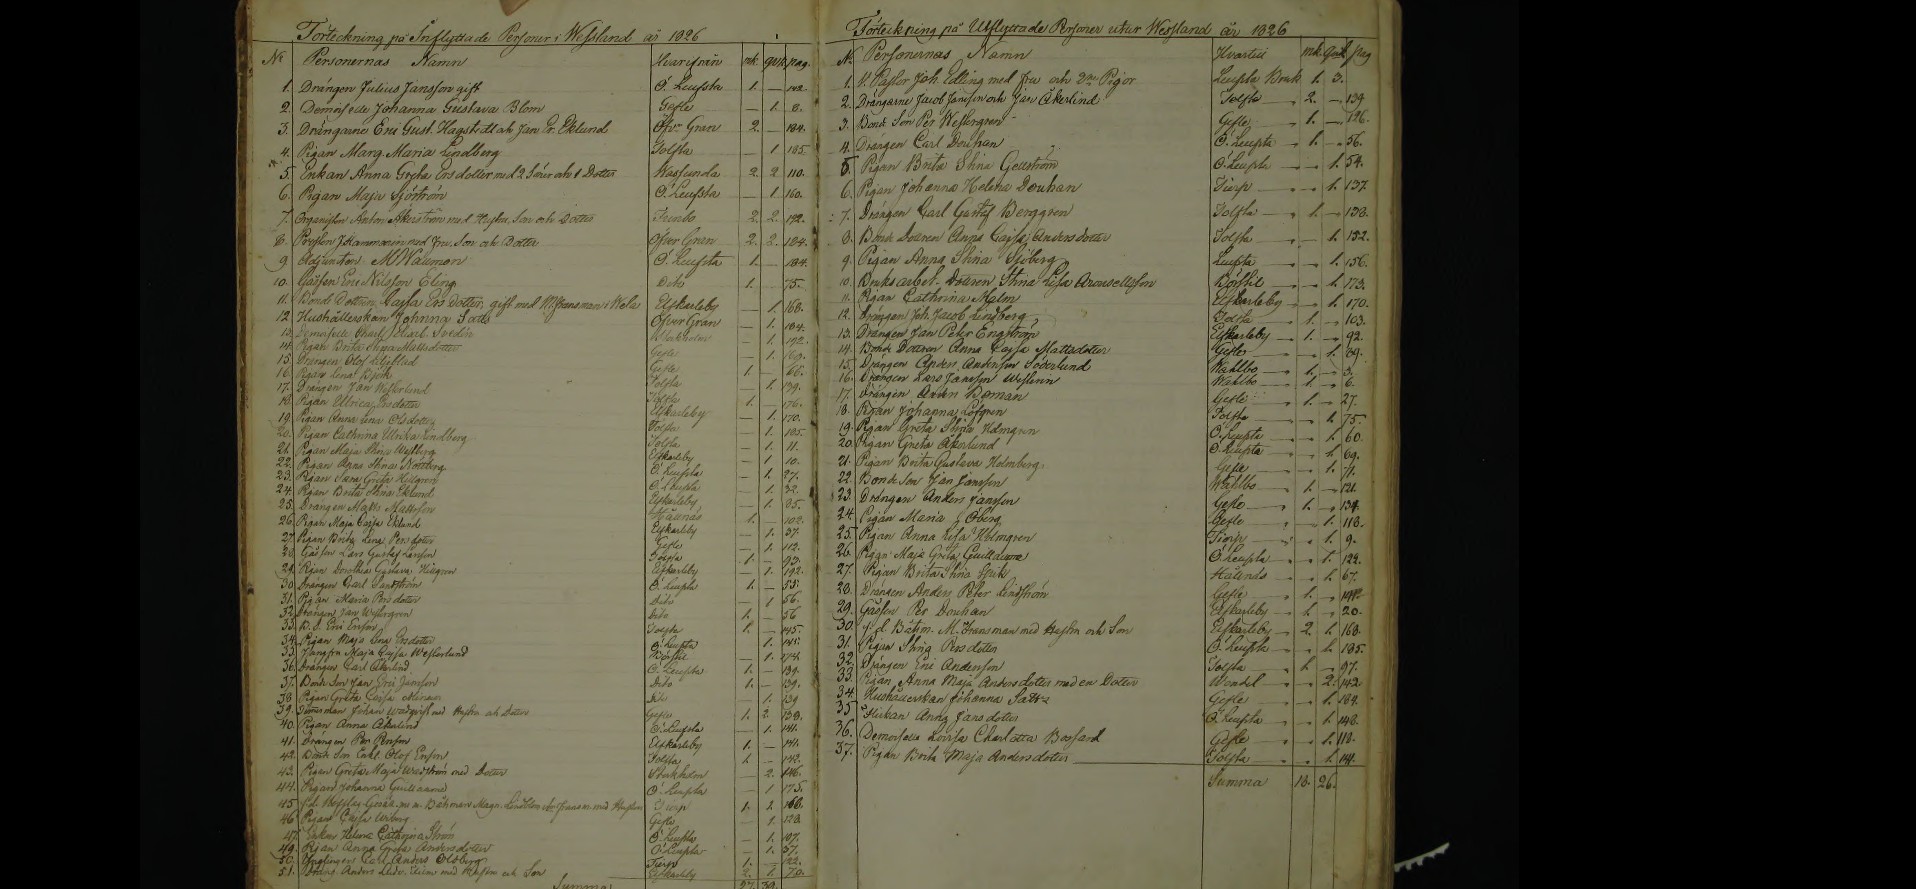 Förteckning på Inflyttade Personer i Wessland år 1826
No Personernas Namn Hvarifrån mk. qvk. pag.
1. Drängen Julius Jansson gift Ö. Leufsta 1. — 142
2. Demoiselle Johanna Gustava Blom Gefle — 1. 8.
3. Drängarne Eric Gust. Hagstedt och Jan Er. Eklund Öfver Gran 2. — 184.
4. Pigan Marg. Maria Lindberg Tolfta — 1. 185.
5. Enkan Anna Greta Ersdotter med 2 Söner och 1 Dotter Hassunda 2. 2. 110.
6. Pigan Maja Sjöström Ö. Leufsta — 1. 160.
7. Organisten Anton Åkerström med Hustru, Son och Dotter 2. 2. 192.
8. med Fru, Son och Dotter Öfver Gran 2. 2. 184.
9. Adjuncten M. Wallmon Ö. Leufsta 1. — 184.
10. Gossen Eric Nilsson Eling Dito 1. — 75.
11. Bonde Dottren Cajsa Ersdotter, gift med Elfkarleby — 1. 168.
12. Hushållerskan Johanna Öfver Gran — 1. 184.
13. Demoiselle Charl. Svedin Stockholm — 1. 192.
14. Pigan Brita Stina Mattsdotter Gefle — 1. 169.
15. Drängen Olof Gefle 1. — 66.
16. Pigan Lena Björk Tolfta — 1. 139.
17. Drängen Jan Westerlund Tolfta 1. — 176.
18. Pigan Ulrica Persdotter Elfkarleby — 1. 170.
19. Pigan Anna Lena Olsdotter Tolfta — 1. 185.
20. Pigan Cathrina Ulrika Lindberg Tolfta — 1. 11.
21. Pigan Maja Stina Westberg Elfkarleby — 1. 10.
22. Pigan Anna Stina Ö. Leufsta — 1. 27.
23. Pigan Sara Greta Hillgren Ö. Leufsta — 1. 32.
24. Pigan Brita Stina Eklund Elfkarleby — 1. 25.
25. Drängen Matts Mattsson Hållnäs 1. — 102.
26. Pigan Maja Cajsa Eklund Elfkarleby — 1. 37.
27. Pigan Brita Lena Persdotter Gefle — 1. 112.
28. Gossen Lars Gustaf Larsson Tolfta 1. — 93.
29. Pigan Dorothea Gustava Hillgren Elfkarleby — 1. 192.
30. Drängen Carl Sandström Ö. Leufsta 1. — 55.
31. Pigan Maria Persdotter Dito — 1. 56.
32. Drängen Jan Westergren Dito 1. — 56
33. B. S. Eric Ersson Tolfta 1. — 145.
34. Pigan Maja Lena Persdotter Ö. Leufsta — 1. 145.
35. Jungfru Maja Cajsa Westerlund Börstil — 1. 174.
36. Drängen Carl Åkerlind Ö. Leufsta 1. — 139.
37. Bonde Son Jan Eric Jansson Dito 1. — 139.
38. Pigan Greta Cajsa Dito — 1. 139
39. Johan med Hustru och Dotter Gefle 1. 2. 138.
40. Pigan Anna Åkerlind Ö. Leufsta — 1. 141.
41. Drängen Per Persson Elfkarleby 1. — 141.
42. Bonde Son Carl Olof Ersson Tolfta 1. — 142.
43. Pigan Greta Maja Wedström med Dotter Stockholm — 2. 146.
44. Pigan Johanna Guillaume Ö. Leufsta — 1. 175.
45. Båtsman Magn. med Hustru Tierp 1. 1. 168.
46. Pigan Cajsa Wiberg Gefle — 1. 128
47. Enkan Helena Cathrina Ström Ö. Leufsta — 1. 107.
49. Pigan Anna Greta Andersdotter Ö. Leufsta — 1. 57.
50. Ynglingen Carl Anders Tierp 1. — 122.
51. Anders med Hustru och Son Elfkarleby 2. 1. 70.
Summa 27. 39.
Förteckning på Utflyttade Personer utur Wessland år 1826
No Personernas Namn Hvartil mk. qvk. pag
1. V. Pastor Joh. Edling med fru och 2ne Pigor Leufsta Bruk 1. 3.
2. Drängarne Jacob Jansson och Jan Åkerlind Tolfta 2. — 139
3. Bonde Son Per Westergren Gefle 1. — 126.
4. Drängen Carl Douhan Ö. Leufsta 1. — 56.
5. Pigan Brita Stina Gellström Ö. Leufsta — 1. 54.
6. Pigan Johanna Helena Douhan Tierp — 1. 137.
7. Drängen Carl Gustaf Berggren Tolfta 1. — 138.
8. Bonde Dottren Anna Cajsa Andersdotter Tolfta — 1. 152.
9. Pigan Anna Stina Sjöberg Leufsta — 1. 156.
10. Bruksarbet. Dottren Stina Lisa Börstil — 1. 173.
11. Pigan Cathrina Malm Elfkarleby — 1. 170.
12. Drängen Joh. Jacob Lindberg Tolfta 1. — 103.
13. Drängen Jan Peter Engström Elfkarleby 1. — 92.
14. Bonde Dottren Anna Cajsa Mattsdotter Gefle — 1. 89.
15. Drängen Anders Andersson Söderlund Wahlbo 1. — 3.
16. Drängen Lars Jansson Westlinn Wahlbo 1. — 6.
17. Drängen Anders Boman Gefle 1. — 27.
18. Pigan Johanna Löfgren Tolfta — 1. 75.
19. Pigan Greta Stina Holmgren Ö. Leufsta — 1. 60.
20. Pigan Greta Åkerlund Ö. Leufsta — 1. 69.
21. Pigan Brita Gustava Holmberg Gefle — 1. 71.
22. Bonde Son Jan Jansson Wahlbo 1. — 121.
23. Drängen Anders Jansson Gefle 1. — 134.
24. Pigan Maria Öberg Gefle — 1. 118.
25. Pigan Anna Lisa Holmgren Tierp — 1. 9.
26. Pigan Maja Greta Guillaume Ö. Leufsta — 1. 122.
27. Pigan Brita Stina Spik Hållnäs — 1. 67.
28. Drängen Anders Peter Lindström Gefle 1. — 142.
29. Gossen Per Douhan Elfkarleby 1. — 20.
30. f.d. Båtsm. M. Fransman med Hustru och Son Elfkarleby 2. 1. 168.
31. Pigan Stina Persdotter Ö. Leufsta — 1. 185.
32. Drängen Eric Andersson Tolfta 1. — 97.
33. Pigan Anna Maja Andersdotter med en Dotter Wendel — 2. 142
34. Hushållerskan Johanna Gefle — 1. 184.
35. Flickan Anna Jansdotter Ö. Leufsta — 1. 148.
36. Demoiselle Lovisa Charlotta Bossard Gefle — 1. 118.
37. Pigan Brita Maja Andersdotter Tolfta — 1. 141.
Summa 18. 26.